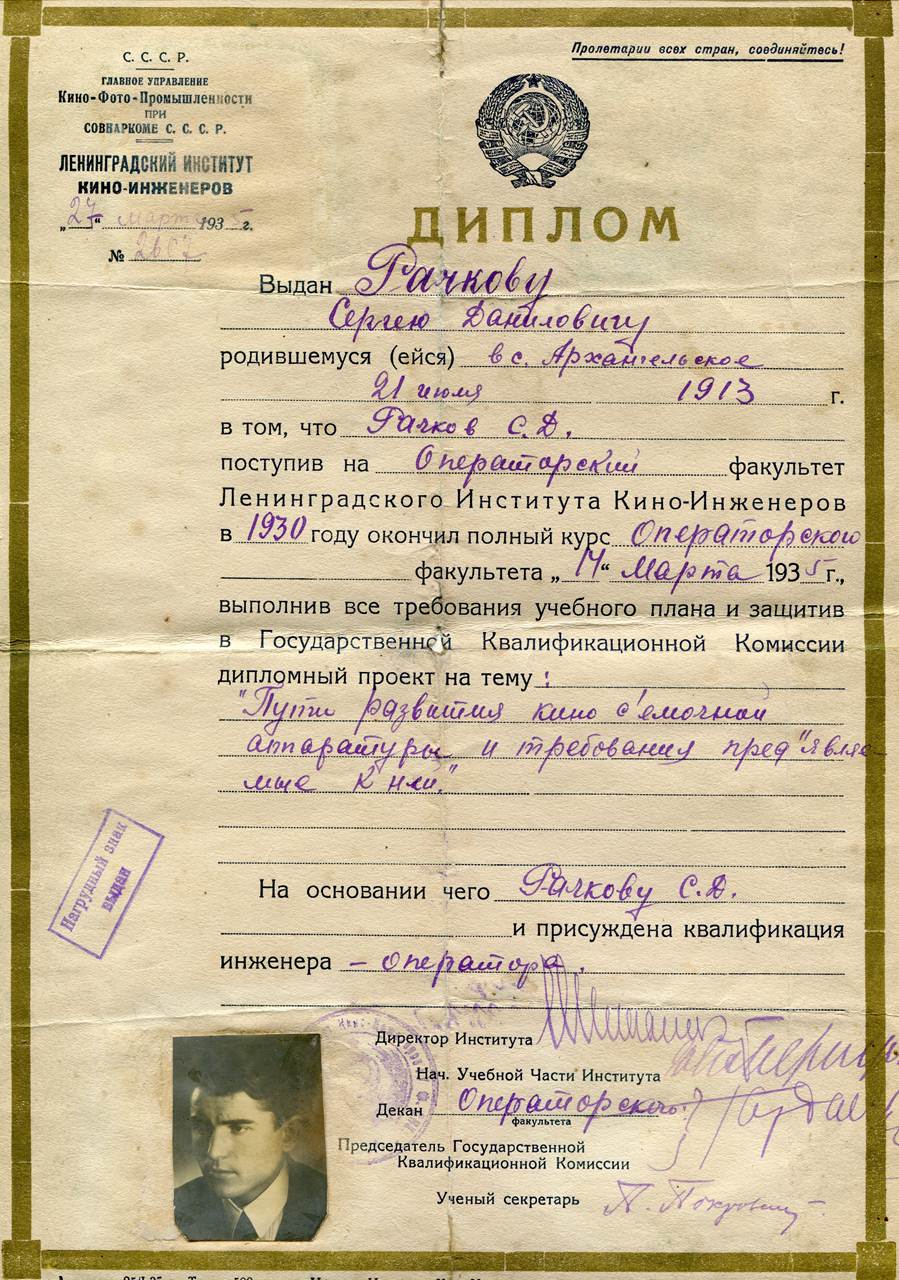 С. С. С. Р.
ГЛАВНОЕ УПРАВЛЕНИЕ
Кино-Фото-Промышленности
ПРИ
СОВНАРКОМЕ С. С. С. Р.
ЛЕНИНГРАДСКИЙ ИНСТИТУТ
КИНО-ИНЖЕНЕРОВ
„27“ марта 1935 г.
№
Пролетарии всех стран, соединяйтесь!
ДИПЛОМ
Выдан Рачкову
Сергею Даниловичу
родившемуся (ейся) в с. Архангельское
21 июля 1913 г.
в том, что Рачков С.Д.
поступив на Операторский факультет
Ленинградского Института Кино-Инженеров
в 1930 году окончил полный курс Операторского
факультета „14“ Марта 1935 г.,
выполнив все требования учебного плана и защитив
в Государственной Квалификационной Комиссии
дипломный проект на тему:
"Пути развития кино с'емочной
аппаратуры и требования пред"являе-
мые к ней."
Нагрудный знак
выдан
На основании чего Рачкову С.Д.
и присуждена квалификация
инженера – оператора.
Директор Института
Нач. Учебной Части Института
Декан Операторского
факультета
Председатель Государственной
Квалификационной Комиссии
Ученый секретарь